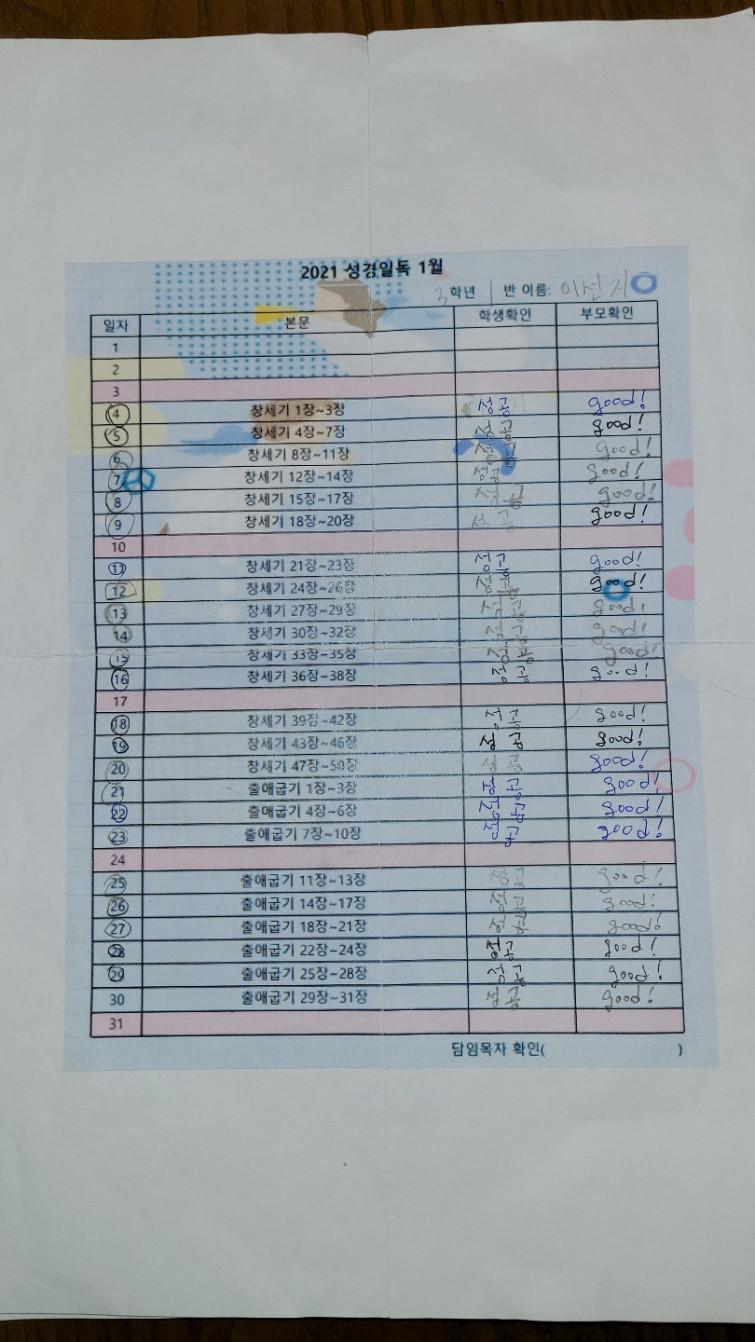 2021 성경일독 1월
3 학년 1 반 이름: 이선지
일자 본문 학생확인 부모확인
1
2
3
4 창세기 1장~3장 성공 good!
5 창세기 4장~7장 성공 good!
6 창세기 8장~11장 성공 good!
7 창세기 12장~14장 성공 good!
8 창세기 15장~17장 성공 good!
9 창세기 18장~20장 성공 good!
10
11 창세기 21장~23장 성공 good!
12 창세기 24장~26장 성공 good!
13 창세기 27장~29장 성공 good!
14 창세기 30장~32장 성공 good!
15 창세기 33장~35장 성공 good!
16 창세기 36장~38장 성공 good!
17
18 창세기 39장~42장 성공 good!
19 창세기 43장~46장 성공 good!
20 창세기 47장~50장 성공 good!
21 출애굽기 1장~3장 성공 good!
22 출애굽기 4장~6장 성공 good!
23 출애굽기 7장~10장 성공 good!
24
25 출애굽기 11장~13장 성공 good!
26 출애굽기 14장~17장 성공 good!
27 출애굽기 18장~21장 성공 good!
28 출애굽기 22장~24장 성공 good!
29 출애굽기 25장~28장 성공 good!
30 출애굽기 29장~31장 성공 good!
31
담임목자 확인( )